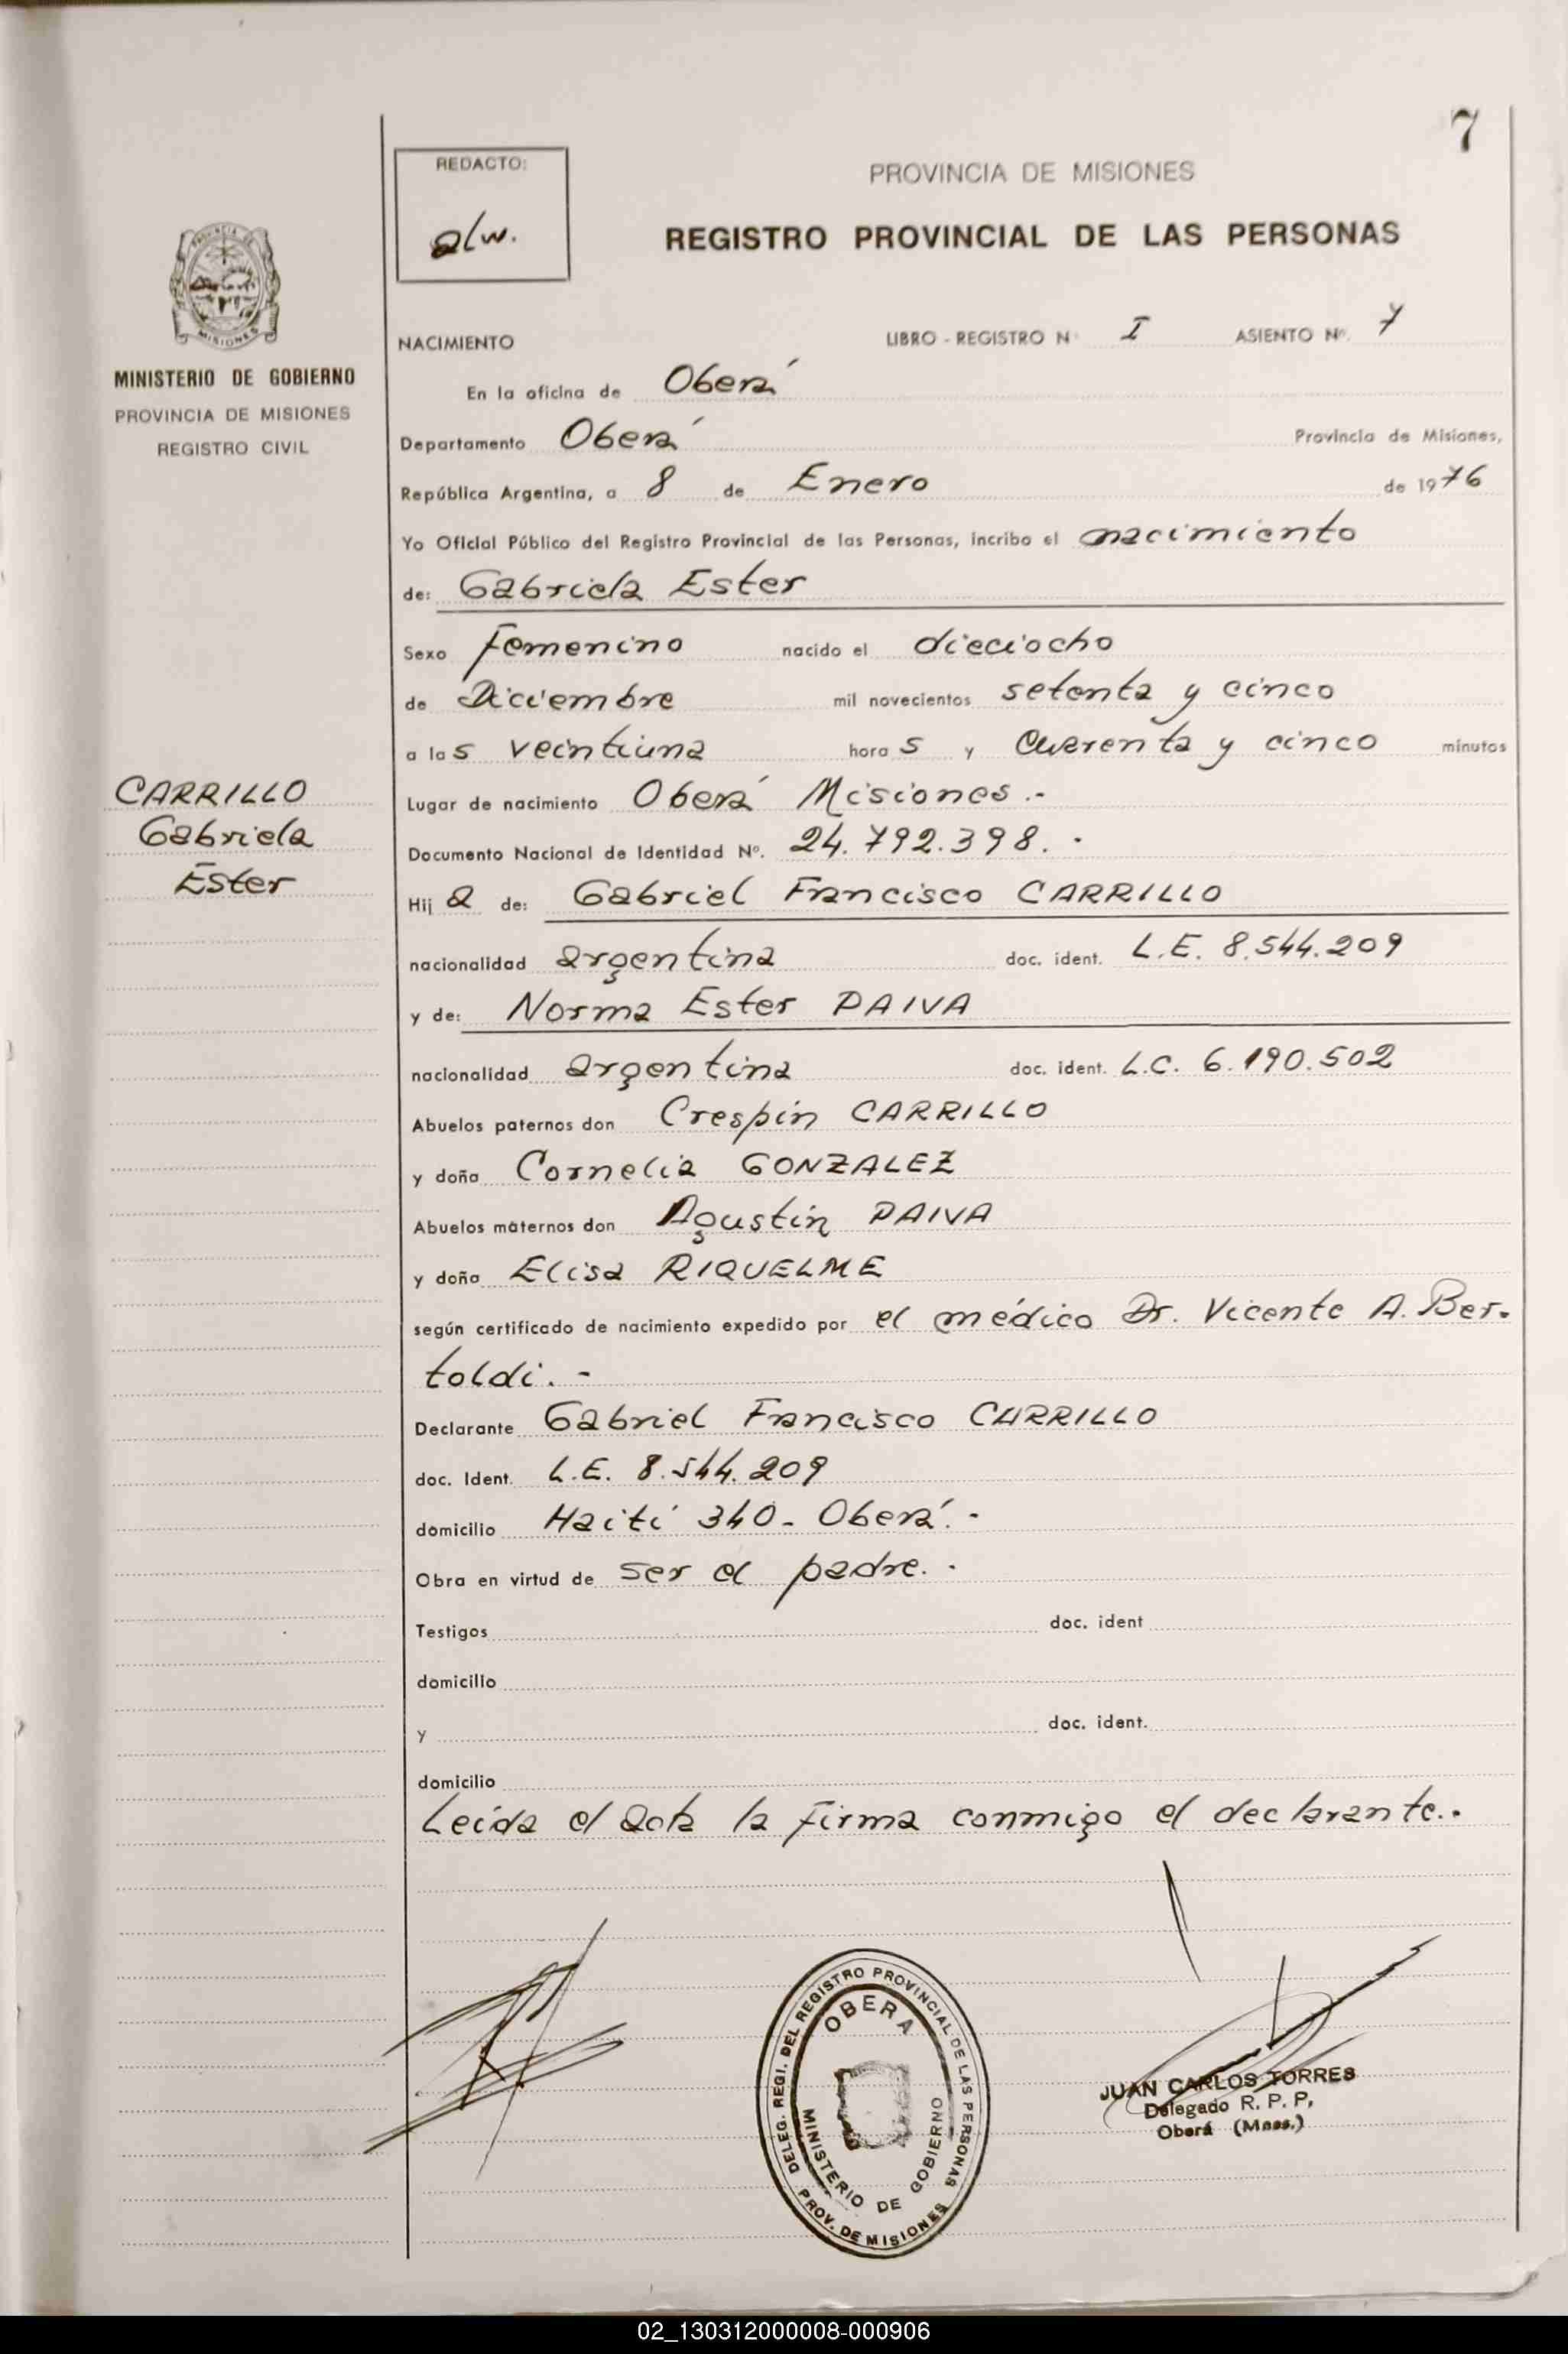 7
REDACTO:
alw.
PROVINCIA DE MISIONES
REGISTRO PROVINCIAL DE LAS PERSONAS
MINISTERIO DE GOBIERNO
PROVINCIA DE MISIONES
REGISTRO CIVIL
CARRILLO
Gabriela
Ester
NACIMIENTO LIBRO - REGISTRO Nº I ASIENTO Nº. 7
En la oficina de Oberá
Departamento Oberá Provincia de Misiones,
República Argentina, a 8 de Enero de 1976
Yo Oficial Público del Registro Provincial de las Personas, incribo el nacimiento
de: Gabriela Ester
Sexo Femenino nacido el dieciocho
de Diciembre mil novecientos setenta y cinco
a las veintiuna horas y cuarenta y cinco minutos
Lugar de nacimiento Oberá Misiones.-
Documento Nacional de Identidad Nº. 24.792.398.-
Hija de: Gabriel Francisco CARRILLO
nacionalidad argentina doc. ident. L.E. 8.544.209
y de: Norma Ester PAIVA
nacionalidad argentina doc. ident. L.C. 6.190.502
Abuelos paternos don Crespin CARRILLO
y doña Cornelia GONZALEZ
Abuelos maternos don Agustin PAIVA
y doña Elisa RIQUELME
según certificado de nacimiento expedido por el médico Dr. Vicente A. Ber-
toldi.-
Declarante Gabriel Francisco CARRILLO
doc. Ident. L.E. 8.544.209
domicilio Haití 340- Oberá.-
Obra en virtud de ser el padre.-
Testigos doc. ident
domicilio
y doc. ident.
domicilio
Leída el acta la firma conmigo el declarante.-
DELEG. REGI. DEL REGISTRO PROVINCIAL DE LAS PERSONAS
OBERA
MINISTERIO DE GOBIERNO
PROV. DE MISIONES
JUAN CARLOS TORRES
Delegado R. P. P,
Oberá (Mnes.)
02_130312000008-000906